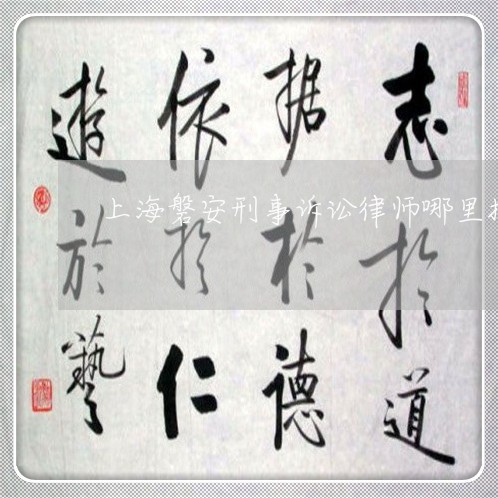 志於道
据於德
依於仁
遊於藝
上海磐安刑事诉讼律师哪里